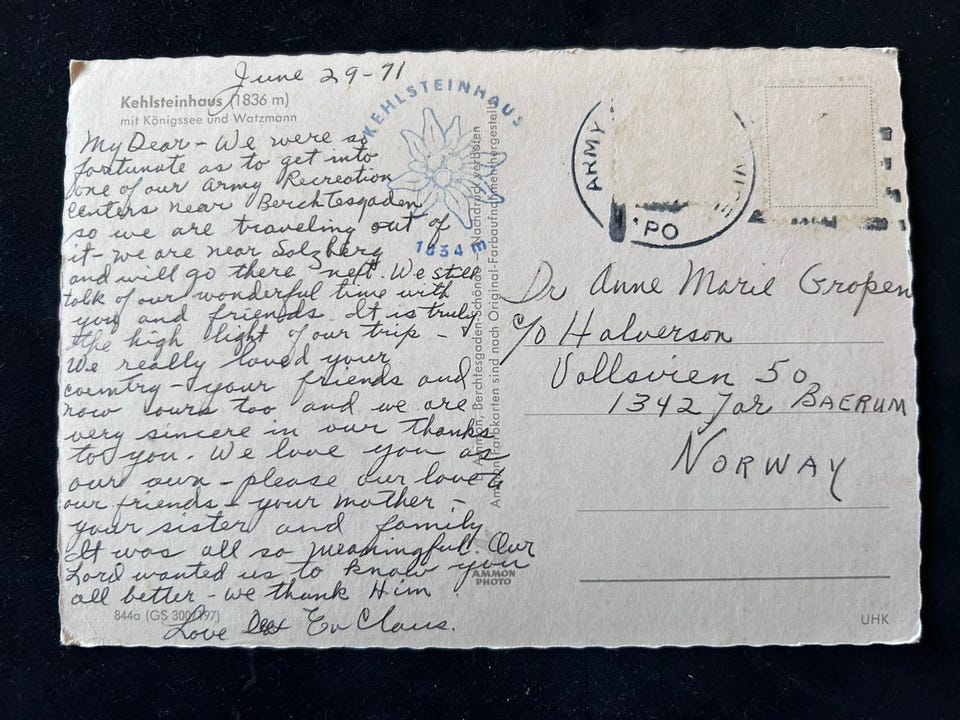 June 29-71
Kehlsteinhaus (1836 m)
mit Königssee und Watzmann
My Dear - We were so
fortunate as to get into
one of our Army Recreation
Centers near Berchtesgaden
so we are traveling out of
it - we are near Salzberg
and will go there next. We still
talk of our wonderful time with
you and friends. It is truly
the high light of our trip -
We really loved your
country - your friends and
now ours too and we are
very sincere in our thanks
to you. We love you as
our own - please our love to
our friends - your mother -
your sister and family
It was all so meaningful. Our
Lord wanted us to know you
all better - we thank Him
Love Ev Claus.
844a (GS 300/
UHK
KEHLSTEINHAUS
1834 m
Ammon, Berchtesgaden-Schönau - Nachdruck verboten
Ammon-Farbkarten sind nach Original-Farbaufnahmen hergestellt
AMMON
PHOTO
ARMY
APO
Dr Anne Marie Gropen
c/o Halverson
Vollsvien 50
1342 Jar BAERUM
NORWAY